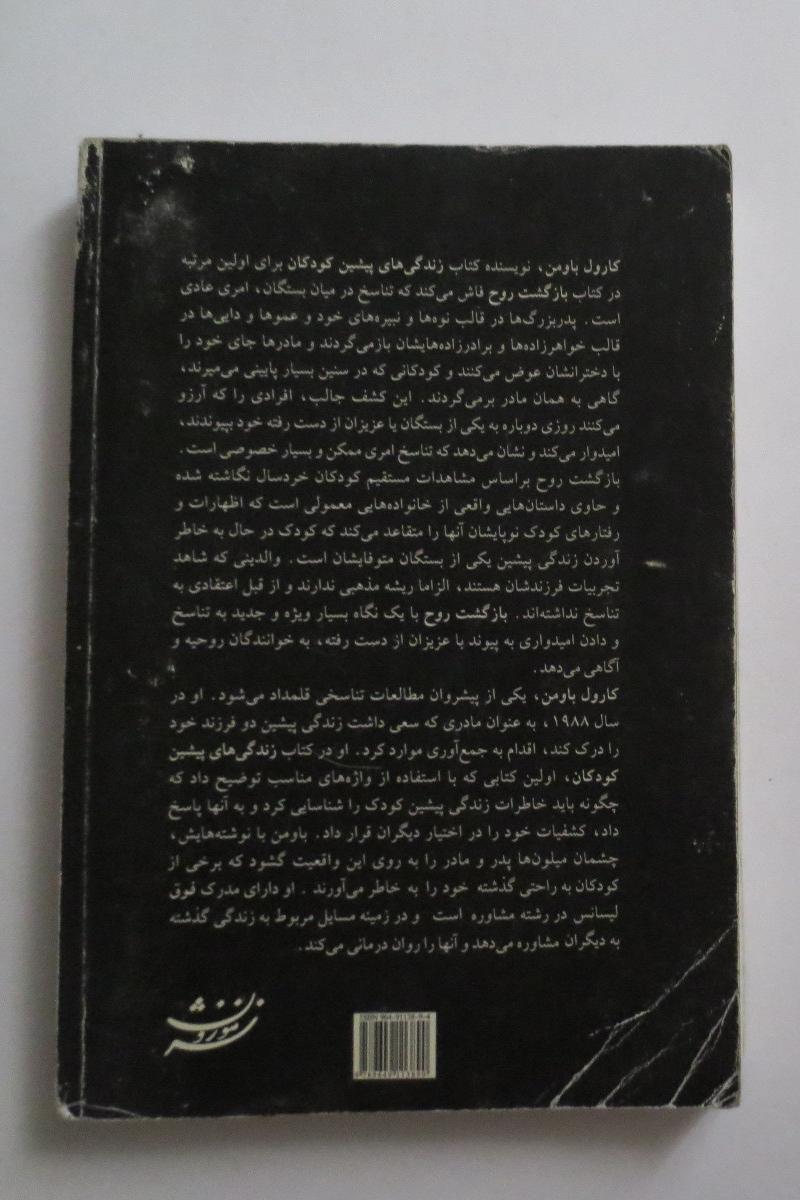 کارول باومن، نویسنده کتاب زندگی‌های پیشین کودکان برای اولین مرتبه
در کتاب بازگشت روح فاش می‌کند که تناسخ در میان بستگان، امری عادی
است. پدربزرگ‌ها در قالب نوه‌ها و نبیره‌های خود و عموها و دایی‌ها در
قالب خواهرزاده‌ها و برادرزاده‌هایشان بازمی‌گردند و مادرها جای خود را
با دخترانشان عوض می‌کنند و کودکانی که در سنین بسیار پایینی می‌میرند،
گاهی به همان مادر برمی‌گردند. این کشف جالب، افرادی را که آرزو
می‌کنند روزی دوباره به یکی از بستگان یا عزیزان از دست رفته خود بپیوندند،
امیدوار می‌کند و نشان می‌دهد که تناسخ امری ممکن و بسیار خصوصی است.
بازگشت روح براساس مشاهدات مستقیم کودکان خردسال نگاشته شده
و حاوی داستان‌هایی واقعی از خانواده‌هایی معمولی است که اظهارات و
رفتارهای کودک نوپایشان آنها را متقاعد می‌کند که کودک در حال به خاطر
آوردن زندگی پیشین یکی از بستگان متوفایشان است. والدینی که شاهد
تجربیات فرزندشان هستند، الزاما ریشه مذهبی ندارند و از قبل اعتقادی به
تناسخ نداشته‌اند. بازگشت روح با یک نگاه بسیار ویژه و جدید به تناسخ
و دادن امیدواری به پیوند با عزیزان از دست رفته، به خوانندگان روحیه و
آگاهی می‌دهد.
کارول باومن، یکی از پیشروان مطالعات تناسخی قلمداد می‌شود. او در
سال ۱۹۸۸، به عنوان مادری که سعی داشت زندگی پیشین دو فرزند خود
را درک کند، اقدام به جمع‌آوری موارد کرد. او در کتاب زندگی‌های پیشین
کودکان، اولین کتابی که با استفاده از واژه‌های مناسب توضیح داد که
چگونه باید خاطرات زندگی پیشین کودک را شناسایی کرد و به آنها پاسخ
داد، کشفیات خود را در اختیار دیگران قرار داد. باومن با نوشته‌هایش،
چشمان میلون‌ها پدر و مادر را به روی این واقعیت گشود که برخی از
کودکان به راحتی گذشته خود را به خاطر می‌آورند. او دارای مدرک فوق
لیسانس در رشته مشاوره است و در زمینه مسایل مربوط به زندگی گذشته
به دیگران مشاوره می‌دهد و آنها را روان درمانی می‌کند.
ISBN 964-91138-9-4
نشر